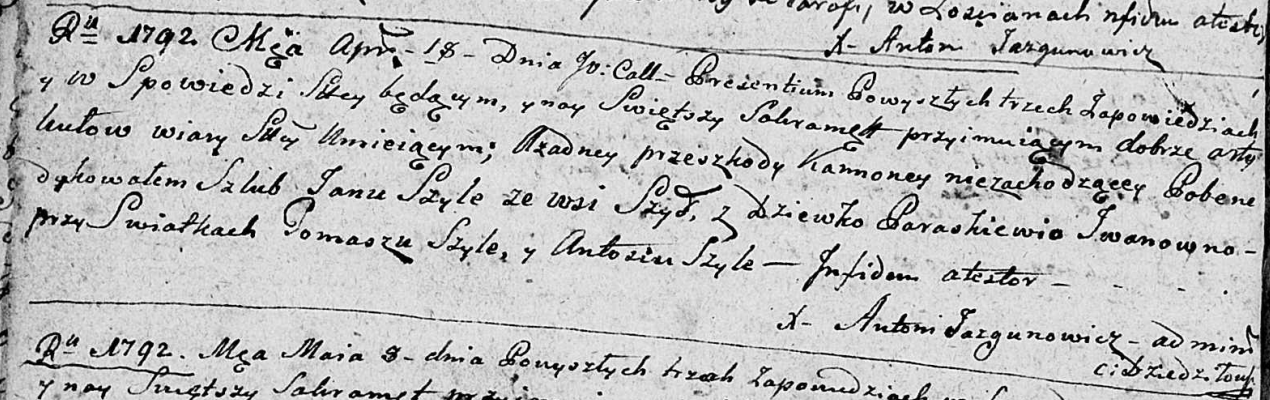 w Łozcianach Infidem atestor
X- Antoni Jazgunowicz
Ru 1792. Mca Apr. - 18 - Dnia Jv: Call - Presentium Powyszłych trzech Zapowiedziach
y w Spowiedzi Stey będącym, y nay Swiętszy Sakramet przyimuiącym dobrze arty
kułow wiary Stey Umieiącym; Rzadney przeszkody Kannoney niezachodzącey Pobene
dykowałem Szlub Janu Szyle ze wsi Szył, z Dziewko Paraskiewio Jwanowno -
przy Swiatkach Tomaszu Szyle, y Antosiu Szyle - Jnfidem atestor -
X- Antoni Jazgunowicz - admini
Ru 1792. Mca Maia 8 - dnia Powyszłych trzech Zapowiedziach
y nay Swiętszy Sakramet